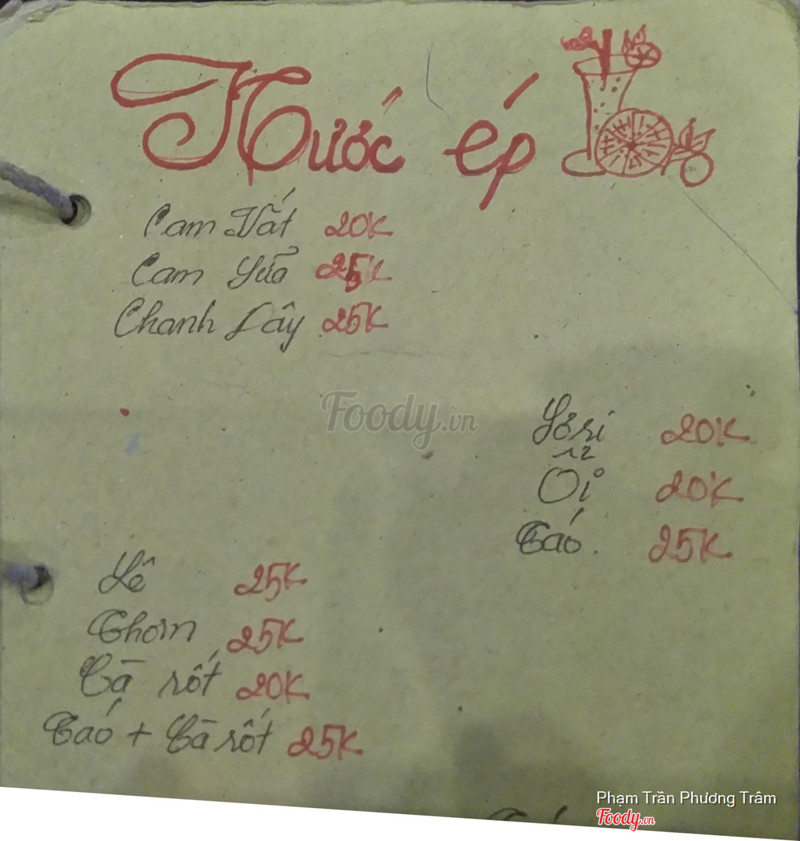 Nước ép
Cam Vắt 20K
Cam Sữa 25K
Chanh Dây 25K
Foody.vn
Sơri 20K
Ổi 20K
Táo 25K
Lê 25K
Thơm 25K
Cà rốt 20K
Táo + Cà rốt 25K
Phạm Trần Phương Trâm
Foody.vn